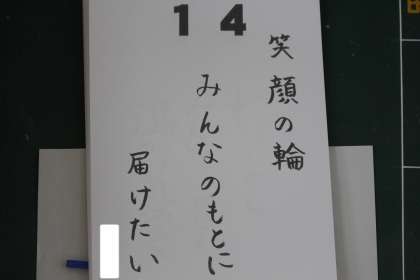 14
笑顔の輪
みんなのもとに
届けたい